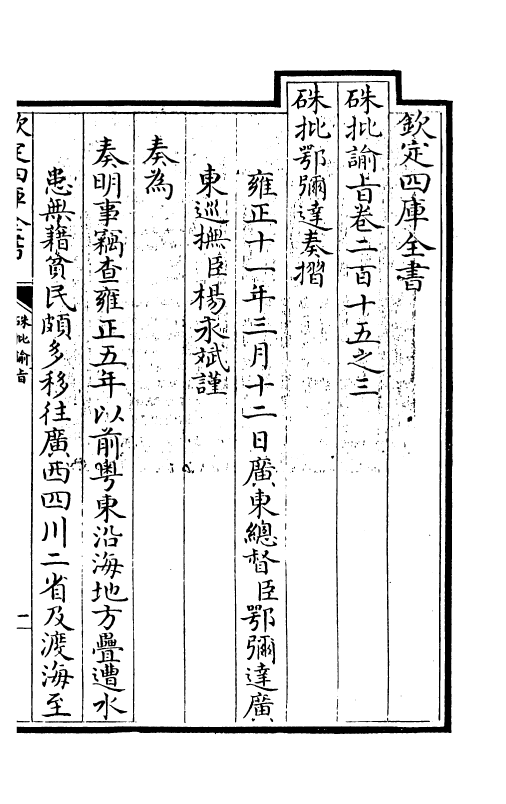 欽定四庫全書
硃批諭旨卷二百十五之三
硃批鄂彌達奏摺
雍正十一年三月十二日廣東總督臣鄂彌達廣
東巡撫臣楊永斌謹
奏為
奏明事竊查雍正五年以前粵東沿海地方疊遭水
患無藉貧民頗多移往廣西四川二省及渡海至
欽定四庫全書
硃批諭旨
一